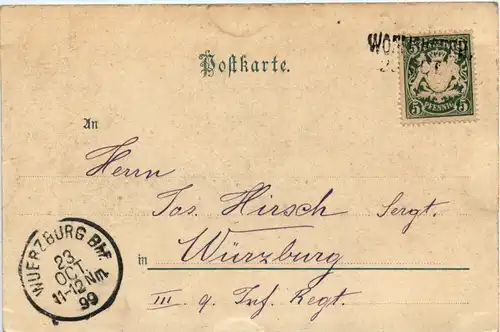 Postkarte.
5 5
PFENNIG
An
Herrn
Jos. Hirsch Sergt.
in Würzburg
III. 9. Inf. Regt.
WUERZBURG Bhf.
23
OCT
11-12 Nm.
99